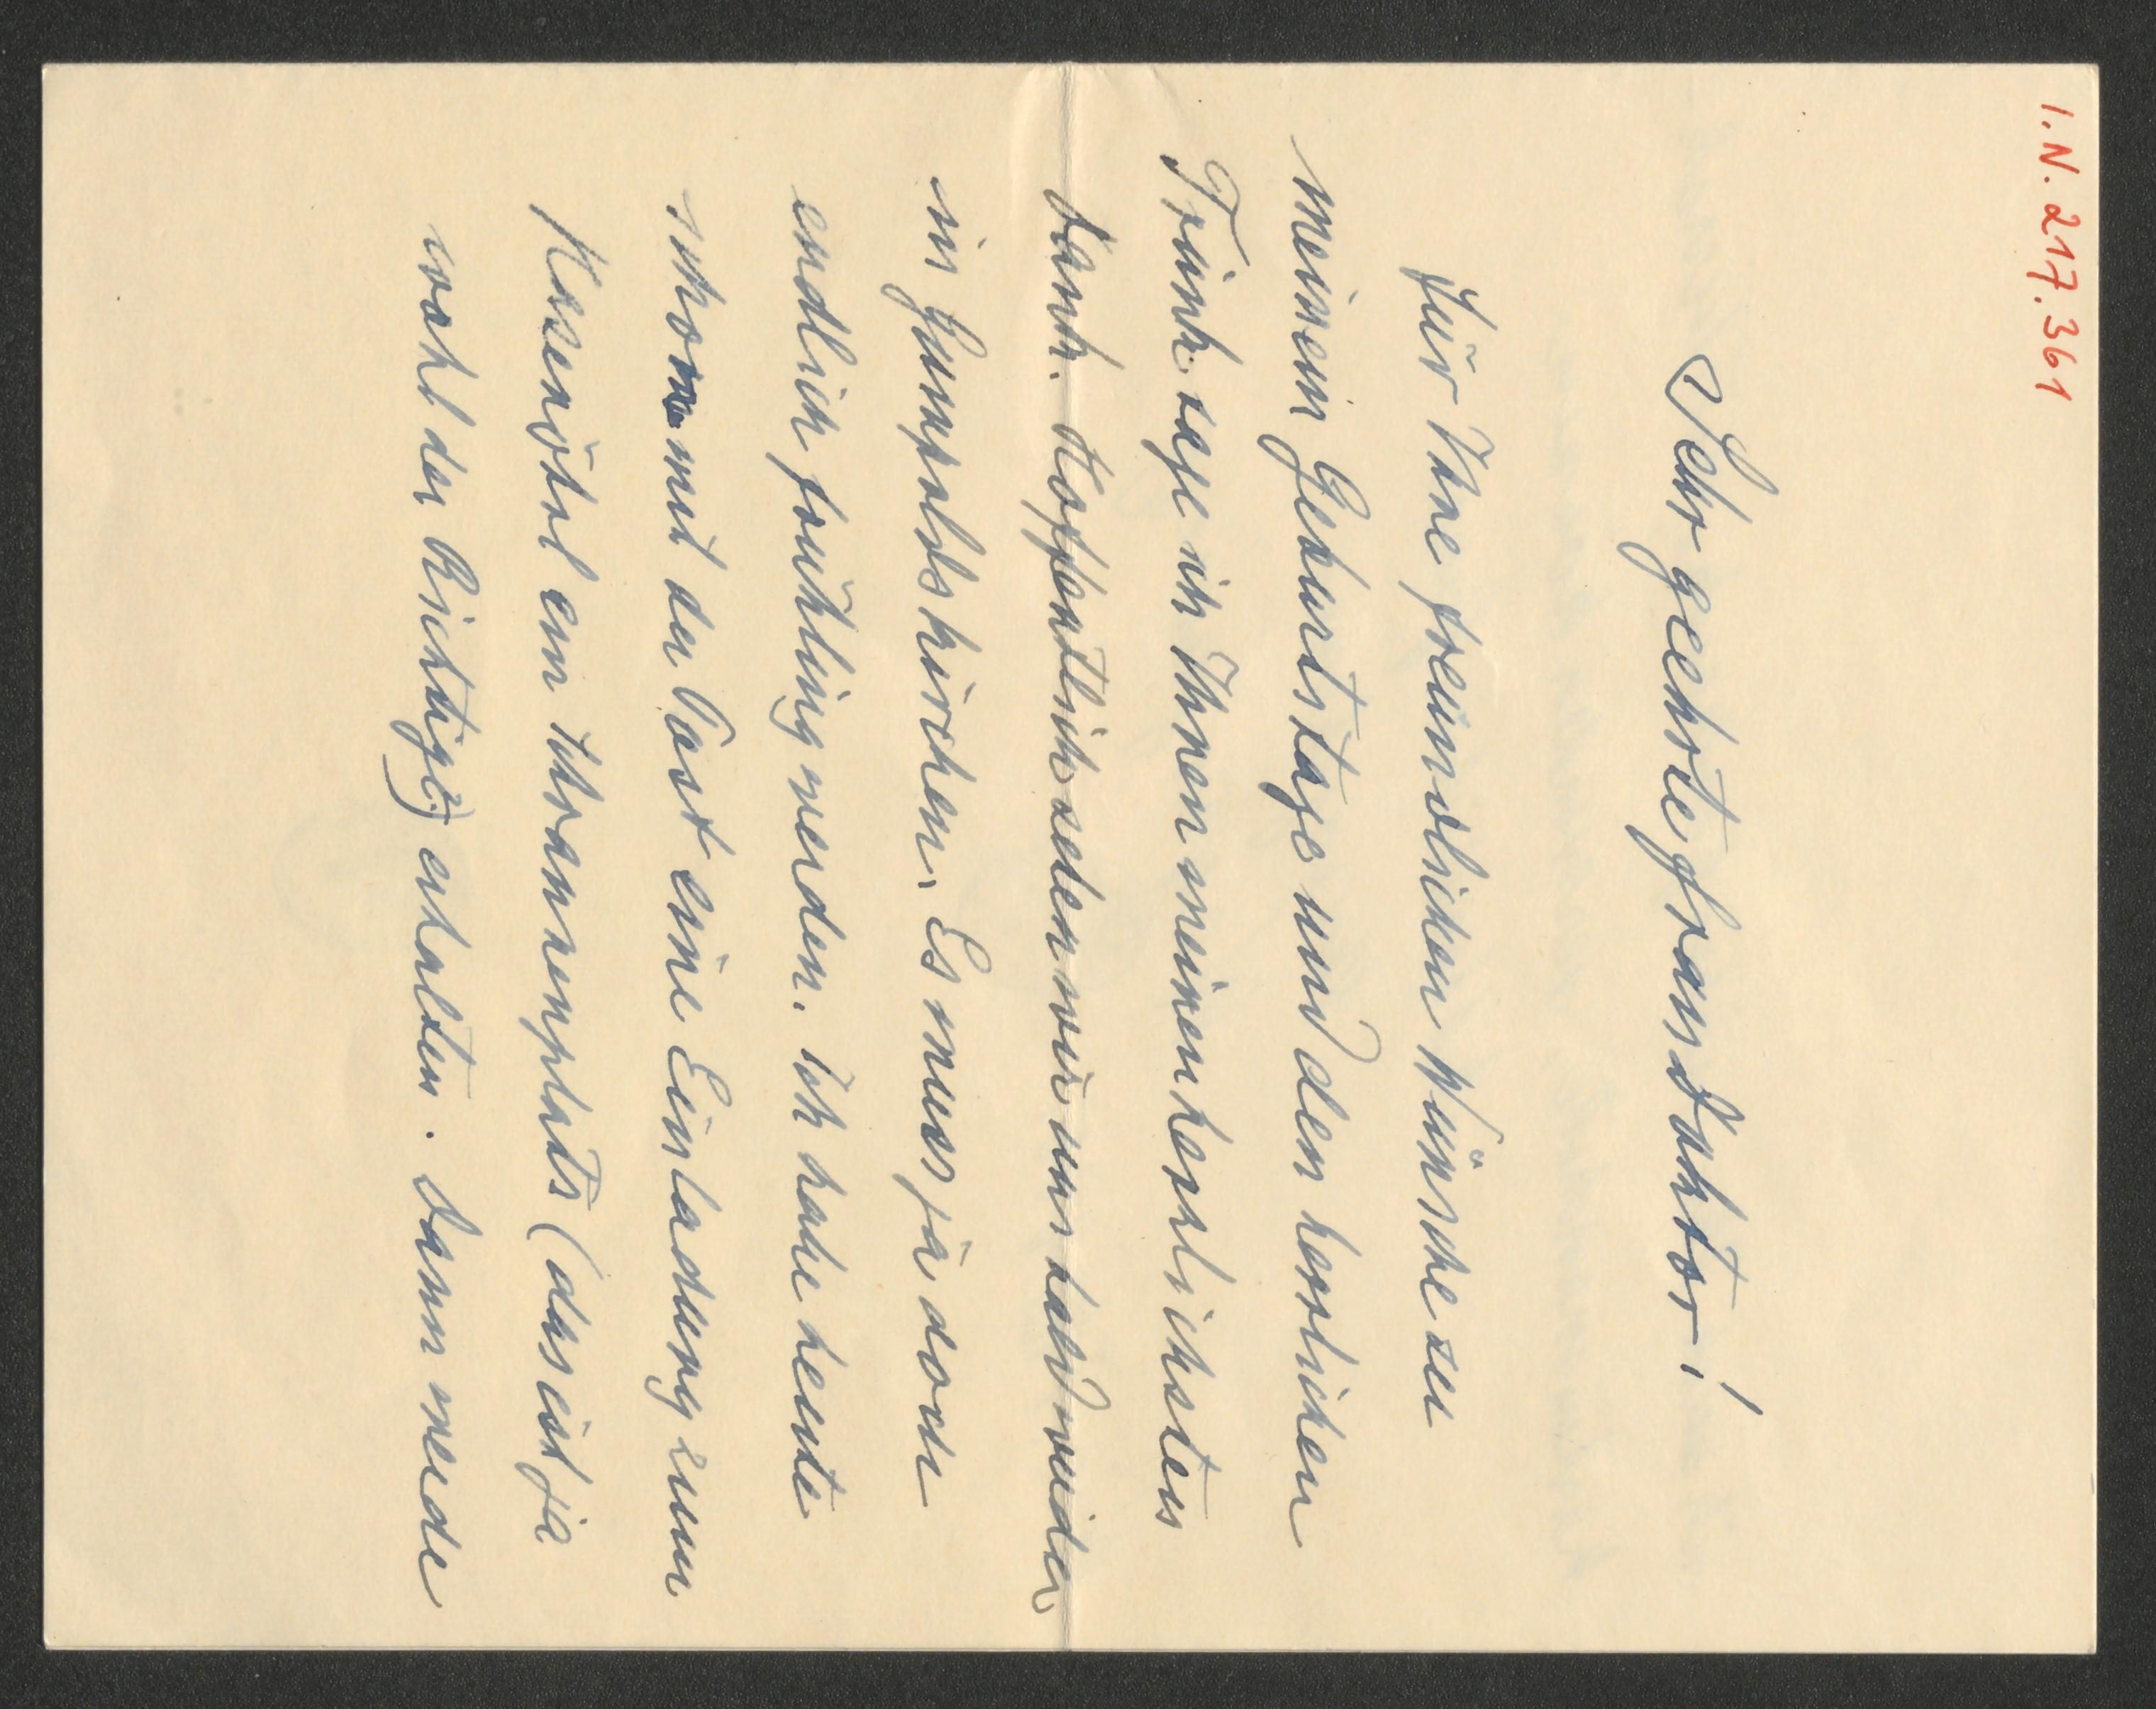 I. N. 217.361
Sehr geehrte Frau Doktor!
Für Ihre freundlichen Wünsche zu
meinem Geburtstage und den herrlichen
Trunk sage ich Ihnen meinen herzlichsten
Dank. Hoffentlich sehen wir uns bald wieder
in Gumpoldskirchen. Es muss ja doch
endlich Frühling werden. Ich habe heute
schon mit der Post eine Einladung zum
ein Thrannenplats (das ist ja
wohl der Richtige) erhalten. Dann werde